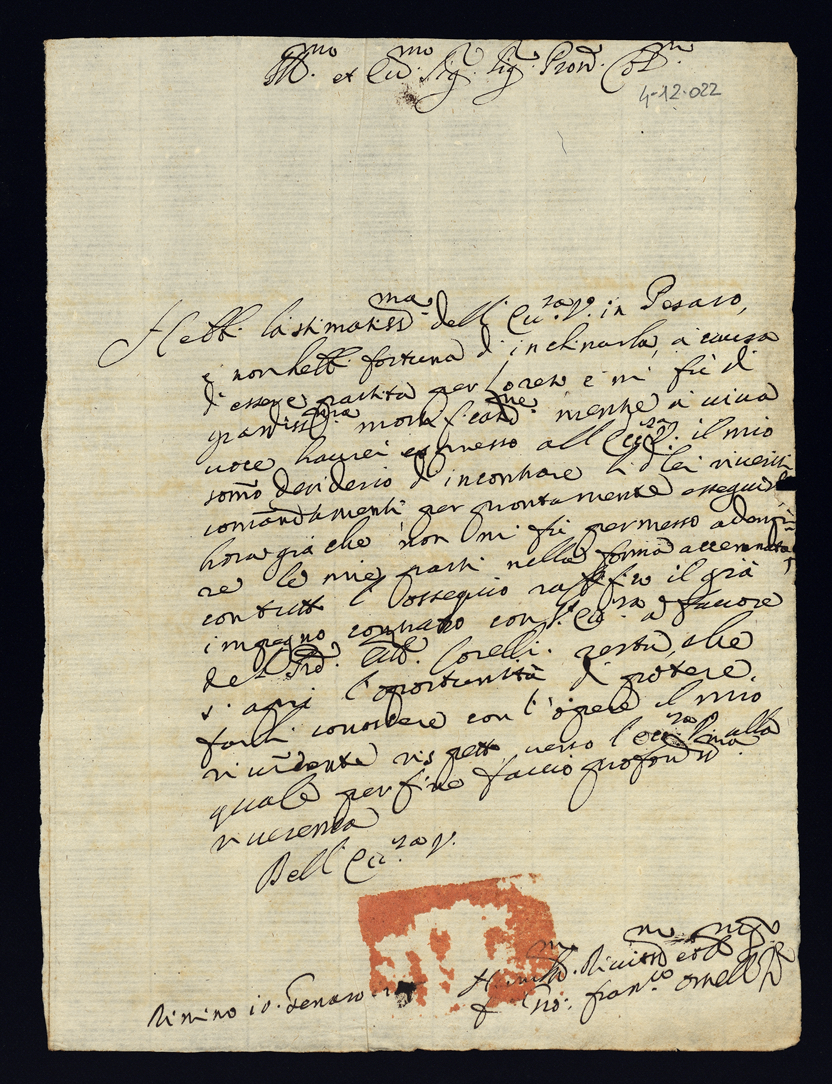 Ill.mo et Ecc.mo Sig. Sig. Pron. Col.mo
4-12.022
Hebbi la stimatiss.ma dell' Ecc.za V. in Pesaro,
e non hebbi fortuna d'inchinarla, a causa
d'essere partita per Loreto e mi fù di
grandiss.ma mortificat.ne mentre a viva
voce haurei espresso all' Ecc.za V. il mio
somo desiderio d'incontrare li di lei riveriti
comandamenti per prontamente esseguirli
hora già che non mi fù permesso adempi=
re le mie parti nella forma accennata,
con tutto l'ossequio ratifico il già
impegno contratto con l'Ecc.za a favore
del Sig. Corelli. resta, che
s'apri l'oportunità di potere
farli conoscere con l'opere il mio
riverente rispetto verso l'Ecc.za V. alla
quale per fine faccio profondiss.ma
riverenza
Dell' Ecc.za V.
Rimino 10. Genaro
Humiliss.mo Diviss.mo et
Fran.co